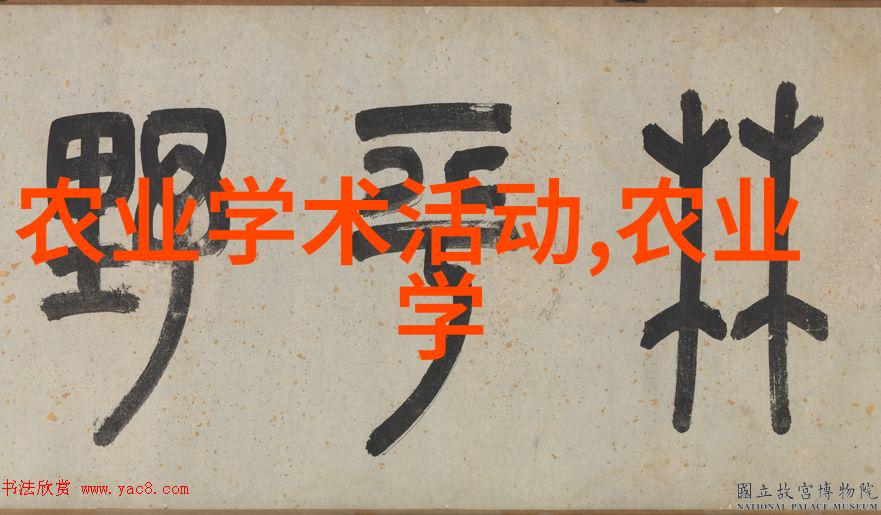 農業学术活动,农业
学
林
平
野
书法欣赏 www.yac8.com
國立故宮博物院
NATIONAL PALACE MUSEUM